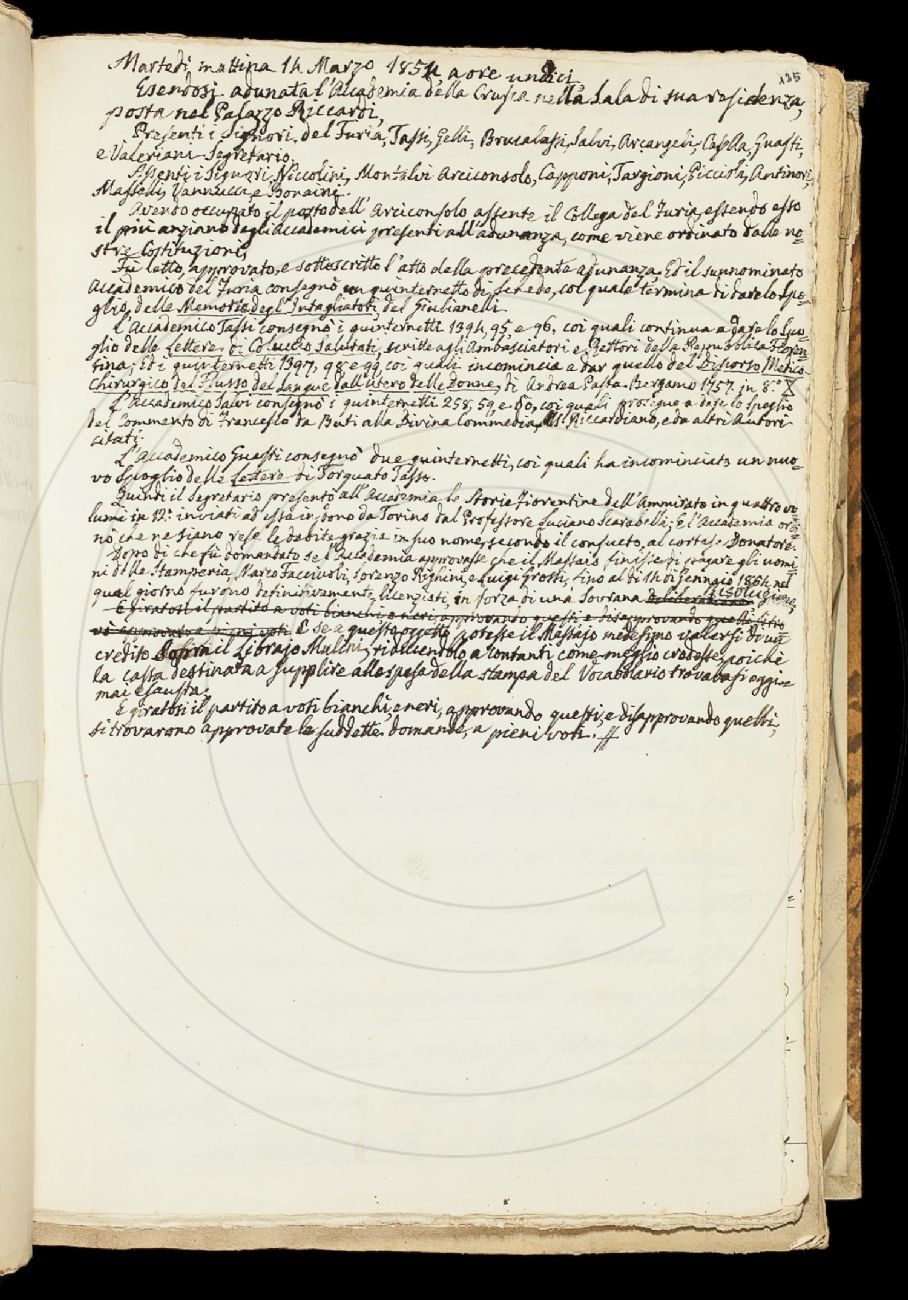 185
Martedì mattina 14 Marzo 1854 a ore undici
Esendosi adunata l'Accademia della Crusca nella Sala di sua residenza,
posta nel Palazzo Riccardi,
Presenti i Signori, del Furia, Tassi, Gelli, Brucalassi, Salvi, Arcangeli, Casella, Guasti,
e Valeriani Segretario.
Assenti i Signori Niccolini, Montalvi Arciconsolo, Capponi, Targioni, Piccioli, Antinori,
Masselli, Vannucci, e Bonaini.
Avendo occupato il posto dell'Arciconsolo assente il Collega del Furia, essendo esso
il più anziano degli Accademici presenti all'adunanza, come viene ordinato dalle no=
stre Costituzioni,
Fù letto, approvato, e sottoscritto l'atto della precedente adunanza. Ed il sunnominato
Accademico del Furia consegnò un quinternetto di schede, col quale termina di dare lo Spo=
glio, delle Memorie degl'Intagliatori, del Giulianelli.
L'Accademico Tassi consegnò i quinternetti 1394, 95 e 96, coi quali continua a dare lo Spo=
glio delle Lettere, di Coluccio Salutati, scritte agli Ambasciatori e Rettori della Repubblica Floren=
tina; Ed i quinternetti 1397, 98 e 99, coi quali incomincia a dar quello del Discorso Medico-
Chirurgico del Flusso del Sangue dall'utero delle Donne, di Andrea Pasta. Bergamo 1757. in 8.°
L'Accademico Salvi consegnò i quinternetti 258, 59, e 60, coi quali prosiegue a dare lo Spoglio
del Commento di Francesco da Buti alla Divina Commedia, Ms. Riccardiano, e da altri Autori
citati.
L'Accademico Guasti consegnò due quinternetti, coi quali ha incominciato un nuo=
vo Spoglio delle Lettere di Torquato Tasso.
Quindi il Segretario presentò all'Accademia le Storie Fiorentine dell'Ammirato in quattro vo
lumi in 12.° inviati ad essa in dono da Torino dal Professore Luciano Scarabelli; E l'Accademia ordi
nò che ne siano rese le debite grazie in suo nome, secondo il consueto, al cortese Donatore.
Dopo di che fù domandato se l'Accademia approvasse che il Massaio finisse di pagare gli uomi=
ni della Stamperia, Marco Facciuoli, Lorenzo Righini, e Luigi Grossi, fino al dì 14 di Gennaio 1854, nel
qual giorno furono definitivamente licenziati, in forza di una Sovrana Risoluzione,
E giratosi il partito a voti bianchi, e neri, approvando questi e disapprovando quelli si tro
E se a questo oggetto potesse il Massajo medesimo valersi di un
credito sopra il Librajo Molini, riducendolo a contanti come meglio credesse, poichè
la cassa destinata a supplire alle spese della stampa del Vocabolario trovavasi oggi=
mai esausta;
E giratosi il partito a voti bianchi, e neri, approvando questi, e disapprovando quelli,
si trovarono approvate le suddette domande, a pieni voti.